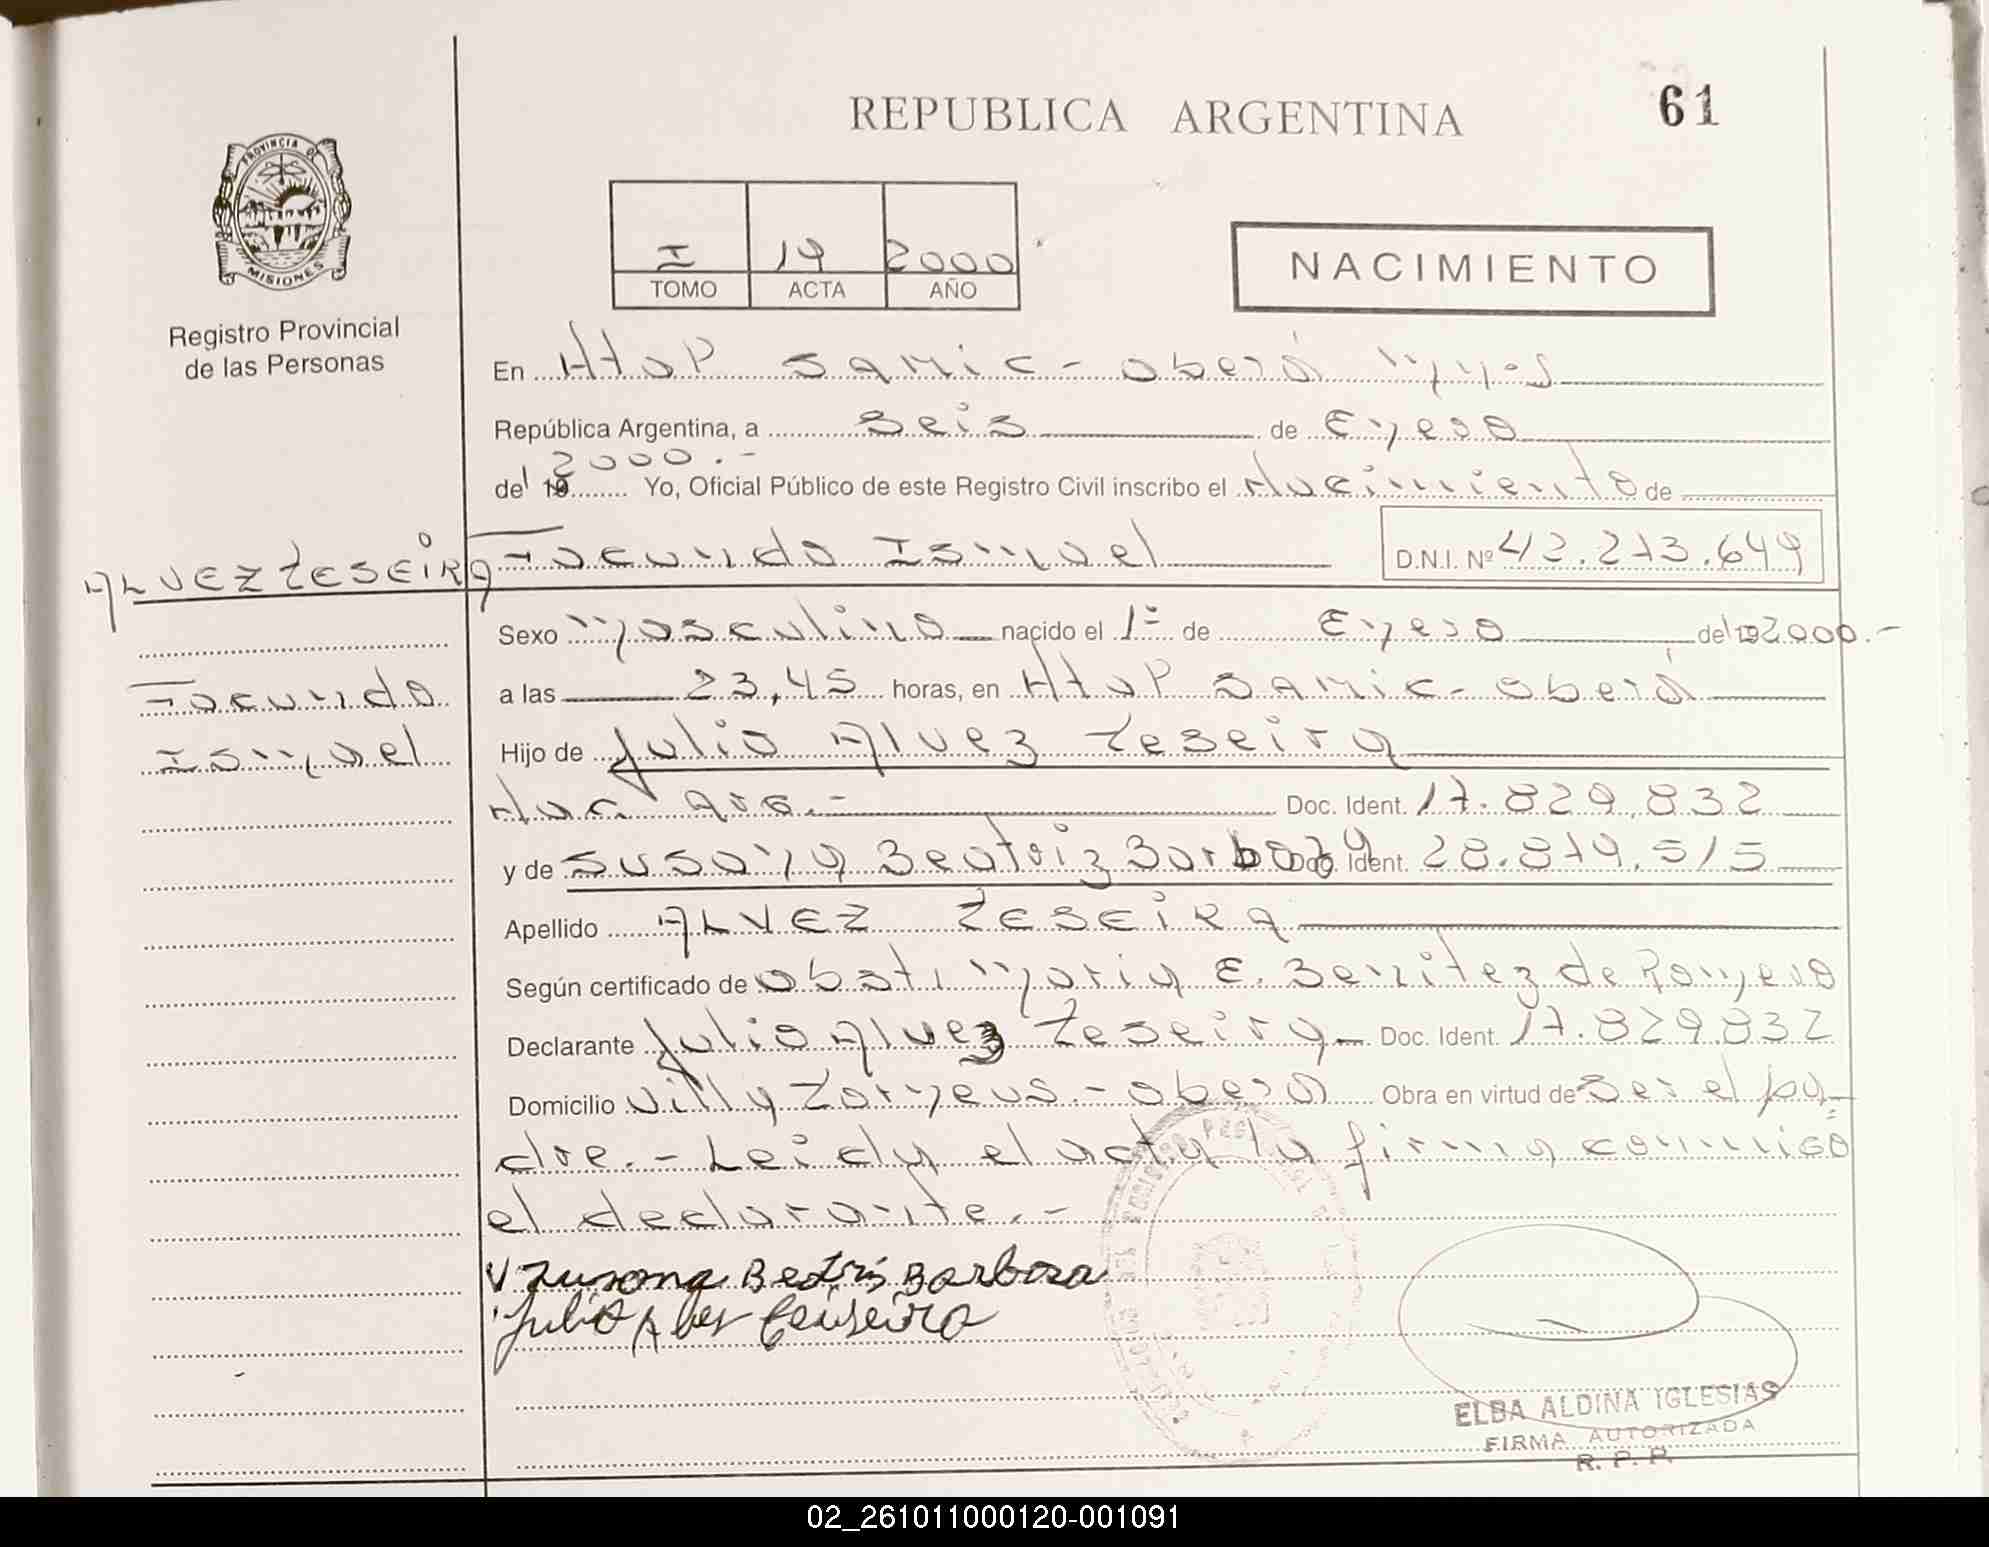 REPUBLICA ARGENTINA
61
PROVINCIA DE
MISIONES
Registro Provincial
de las Personas
I 19 2000
TOMO ACTA AÑO
NACIMIENTO
En Htop SAMIC - Oberá Mnes
República Argentina, a seis de Enero
del 19 2000.- Yo, Oficial Público de este Registro Civil inscribo el Nacimiento de
ALVEZ TESEIRA Facundo Ismael D.N.I. Nº 42.273.649
Sexo Masculino nacido el 1º de Enero del 2000.-
Facundo
a las 23,45 horas, en Htop SAMIC - Oberá
Ismael
Hijo de Julio Alvez Teseira
Nac. Arg.- Doc. Ident. 17.829.832
y de Susana Beatriz Barboza Doc. Ident. 28.879.515
Apellido ALVEZ TESEIRA
Según certificado de Obst. Maria E. Benitez de Romero
Declarante Julio Alvez Teseira Doc. Ident. 17.829.832
Domicilio Villa Obera Obra en virtud de ser el pa-
dre.- Leida el acta la firma conmigo
el declarante.-
Susana Beatris Barboza
Julio Alves Teiseira
ELBA ALDINA IGLESIAS
FIRMA AUTORIZADA
R. P. P.
02_261011000120-001091